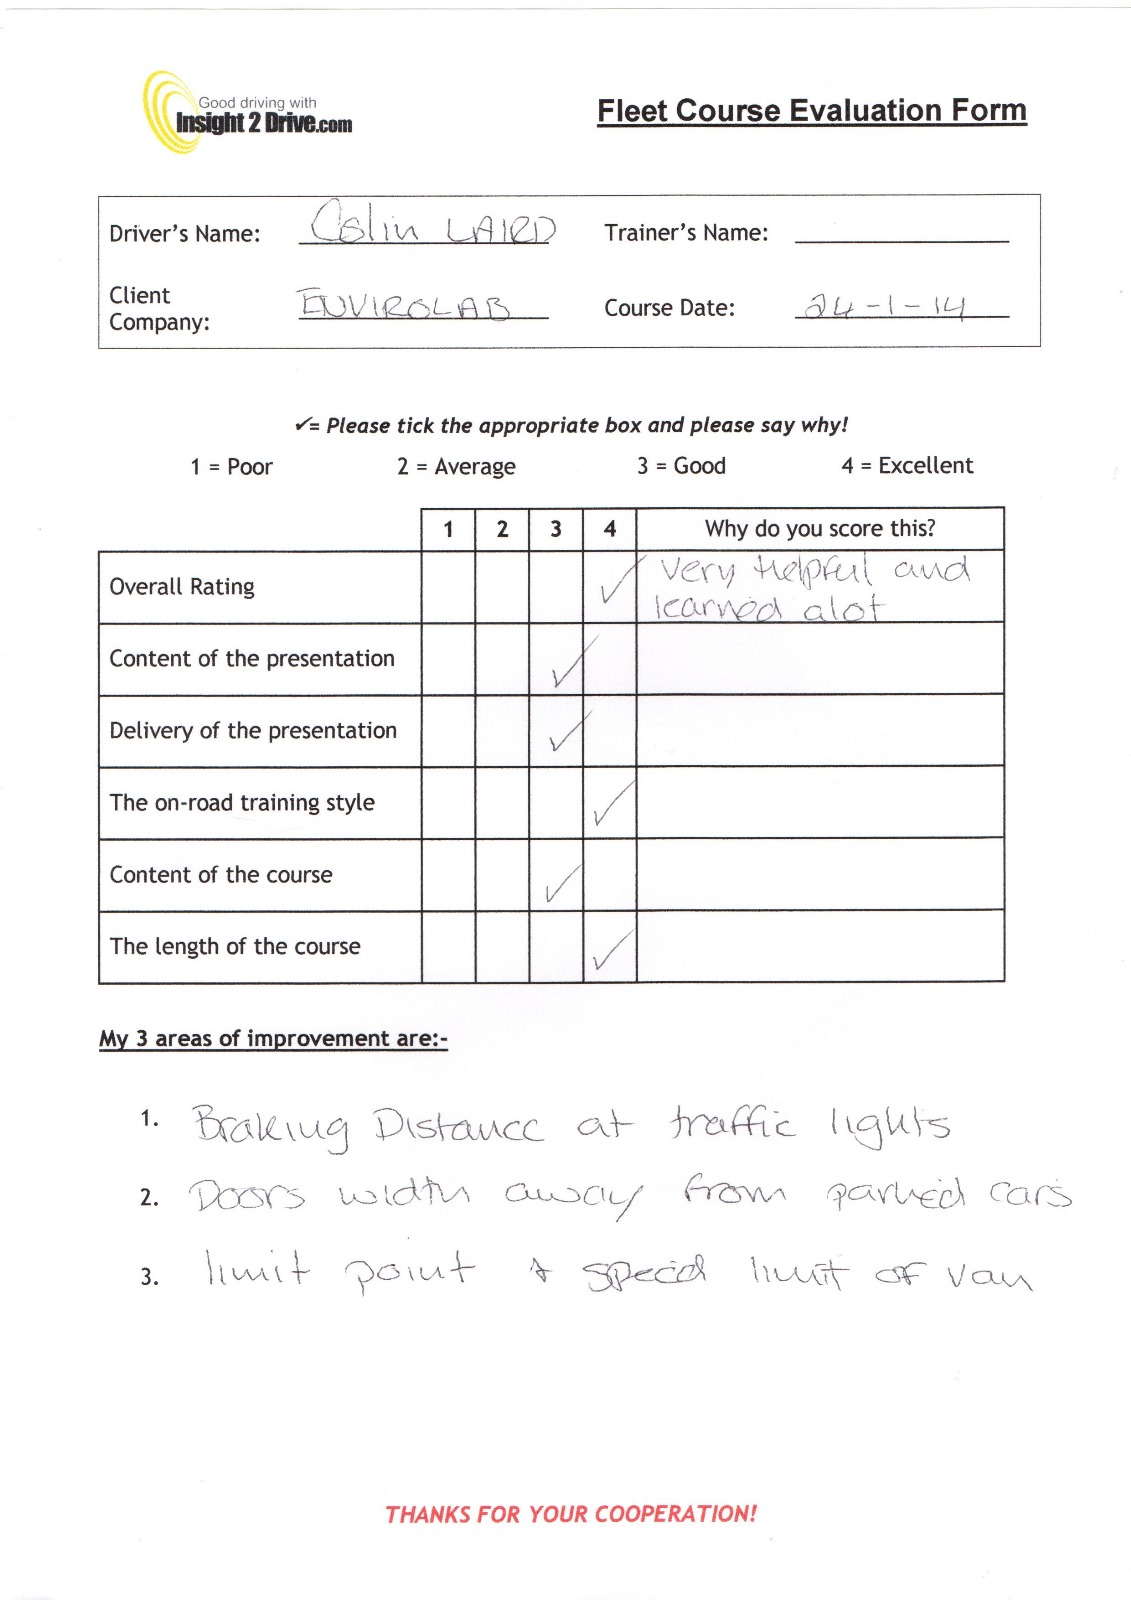 Good driving with
Insight 2 Drive.com
Fleet Course Evaluation Form
Driver's Name: Colin LAIRD Trainer's Name:
Client Company: ENVIROLAB Course Date: 24-1-14
✓= Please tick the appropriate box and please say why!
1 = Poor 2 = Average 3 = Good 4 = Excellent
1 2 3 4 Why do you score this?
Overall Rating ✓ Very Helpful and
learned alot
Content of the presentation ✓
Delivery of the presentation ✓
The on-road training style ✓
Content of the course ✓
The length of the course ✓
My 3 areas of improvement are:-
1. Braking Distance at traffic lights
2. Doors width away from parked cars
3. limit point & speed limit of van
THANKS FOR YOUR COOPERATION!